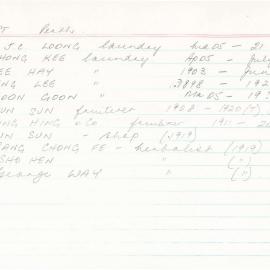 PT Perth
J.C. LOONG laundry Mar05 - 21
HONG KEE laundry Ap05 - July
EE HAY " 1903 - Jun
NG LEE " 1898 - 192
OON GOON " Mar05 - 19
UN SUN furniture 1908 - 1920(?)
NG HING & Co furniture 1911 - 2
UN SUN - shop (1919)
ANG CHONG FE - herbalist (1919)
SHO HEN " (")
George WAY " (")